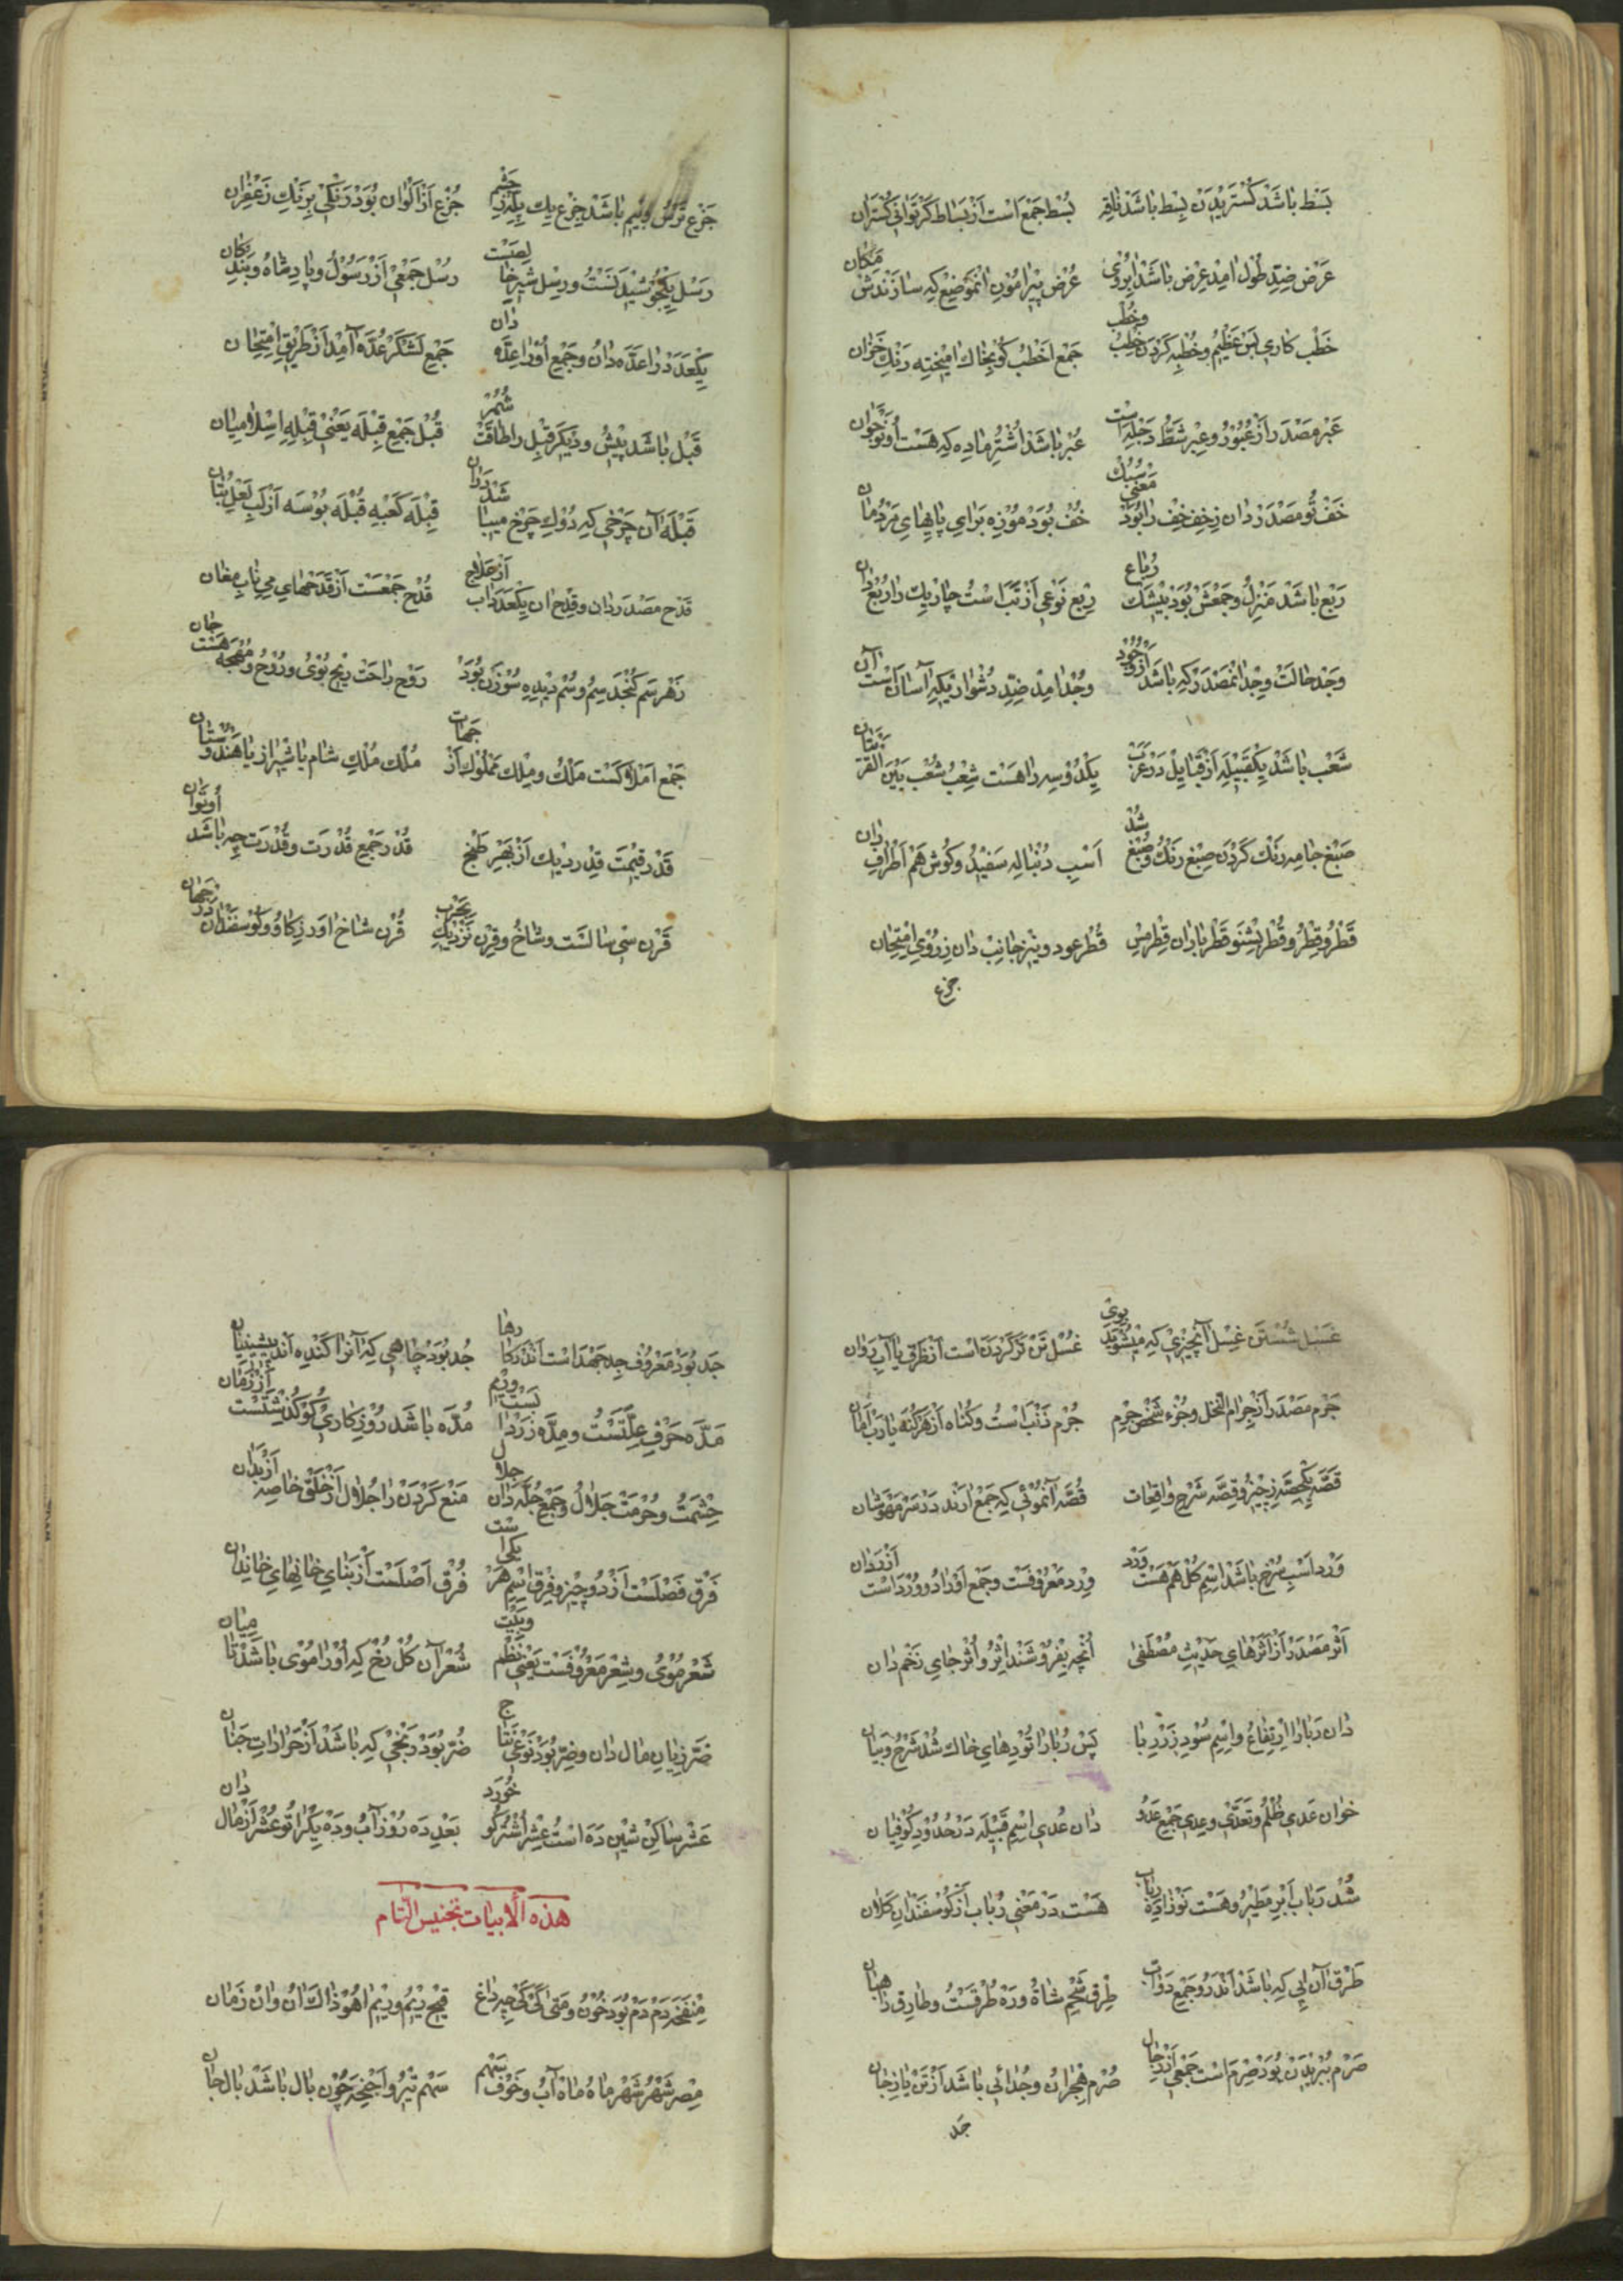 بَسْط باشَدْ كُسْتَرِيدَنْ بِسْط باشَدْ ناقَه بُسْط جَمْع است اَزْ بَساط كَرْ تَوانِي كُسْتَران
عَرْض ضِدِّ طُول امد عِرْض باشَدْ ابروي عُرْض پيرامُونِ انْمَوْضِعْ كِه سازَنْدَشْ مَكان
خَطْب كاري بَسْ عَظِيمُ وخُطْبه كَرْدَنْ خِطْبُ وخُطْب جَمْع اَخْطَبْ كو بخاك اميخته رَنْكِ خَزان
عَبْر مَصْدَر از عُبُورُ وعِبْر شَطِّ دَجْلَه است عُبْر باشَدْ اُشْتُرِ ماده كِه هَسْت اُو نَوْجَوان
خَفْ تُو مَصْدَرْ دان زِخِفْ خِف را بُوَدْ مَعْنِي سَبُكْ خُفْ بُوَدْ مُوزه بَراي پايهاي مَرْدُمان
رَبْع باشَدْ مَنْزِلُ وجَمْعَشْ بُوَدْ بيشَك رُباع رِبْع نَوْعِي اَزْ تَب است چاريك را رُبْع دان
وَجْد حالَتْ وِجْد انْمَصْدَرْ كِه باشَدْ اَزْ وُجُود وُجْد امد ضِدِّ دُشْوار يكه آسان است آن
شَعْب باشَدْ يكقبيله اَزْ قَبايِلْ دَرْ عَرَبْ يكدُ وسِه را هَسْت شِعْبُ شُعْب بَيْنَ القَرْيَتان
صَبْغ جامه رَنْك كَرْدَن صِبْغ رَنْكُ وصُبْغ شُدْ اَسْبِ دُنْباله سَفيدُ وكُوش هَم اَطْرافِ ران
قَطْرُ وقِطْرُ وقُطْر بِشْنَو قَطْر باران قِطْر مِسِ قُطْر عود ونيز جانِبْ دان زِرُويِ امْتِحان
جزع
جَزْع تَرْسُ وبيم باشَدْ جِزْع يك بِكَنْدِ چَشْم جُزْع اَزْ اَلْوان بُوَدْ رَنْكي بِرَنْكِ زَعْفَران
رَسْل كِيجُو سُيْدَنَسْتُ ورِسْل شيرِ خالِصَسْت رُسْل جَمْعِي اَزْ رَسُولُ وپادِشاه وبَنْدِكان
يِكْعَدَدْ را عَدَّه دان وجَمْعِ اُورا عِدَّه دان جَمْعِ لَشْكَرْ عُدَّه آمد اَزْ طَريقِ امْتِحان
قَبْل باشَدْ پيشُ وديكَر قِبْل را طاقَتْ شُمُر قُبْل جَمْعِ قِبْلَه يَعْنِي قِبْلَهِ اِسْلاميان
قَبْلَه آن چَرْخي كِه دُوكِ چَرْخ مييا شَدْ دَران قِبْلَه كَعْبَه قُبْلَه بُوسَه اَزْ لَبِ لَعْلِ بُتان
قَدْح مَصْدَر دان وقِدْح ان يكعَدَدْ اب اَزْ عِلاج قُدْح جَمْعَسْت اَزْ قَدَحْهاي مي نابِ مغان
زَهْر سَم كُنْجَدِ سِمُ وسُم ديده سُوزَن بُوَدْ رَوْح راحَتْ رِيْح بُويُ ورُوحُ ومُهْجَه هَسْت جان
جَمْع اَمْلاكَسْت مَلْكُ ومِلْك مَمْلُوك اَزْ جِهات مُلْك مُلْكِ شام يا شيراز يا هِنْدُوسْتان
قَدْر قيمَت قِدْر ديك اَزْ بَهْرِ طَبْخ قُدْر جَمْعِ قُدْرَت وقُدْرَت چه باشَد اُوتوان
قَرْن سي سالَسْت وشاخُ وقِرْن نَزْدِيكِ بَحَرْب قُرْن شاخ اوَرْ زِكاوُ وكُوسفَنْدان دَرْ جِهان
غَسْل شُسْتَن غِسْل آنچيزي كِه ميشُويَدْ بوي غُسْل تَنْ تَر كَرْدَن است اَزْ ظَرْق يا آبِ رَوان
جَرْم مَصْدَر اَزْ جِرام النّخل وجُزْءِ شَخْصْ جِرْم جُرْم ذَنْب است وكُناه اَزْ هَرْ كُنَه يارَبْ اَمان
قَصَّه يكحِصّه زِچيزُ وقِصَّه شَرْحِ واقِعات قُصَّه آنمُوئي كِه جَمْع ارَنْد دَرْ سَرْ مَهْوَشان
وَرْد اَسْبِ سُرْخ باشَدْ اِسْمِ كُلْ هَمْ هَسْت وَرْد وِرْد مَعْرُوفَسْت وجَمْعِ اَوْراد ووُرْد است اَزْ رَوان
اَثْر مَصْدَرْ اَزْ اَثَرْهاي حَديثِ مُصْطَفى اُنْچه بِفْرُوشَنْد اِثْرُ واُثْر جايِ زَخْم دان
دان رَبا را اِرْتِفاعُ واِسْمِ سُودِ زَرْ رِبا پَسْ رُبا را تُودِهاي خاك شُدْ شَرْحُ وبَيان
خوان عَدي ظُلْمُ وتَعَدّي وعِدي جَمْعِ عَدُو دان عُدي اِسْمِ قَبيلَه دَرْ حُدُودِ كُوفِيان
شُدْ رَباب اَبْرِ مَطيرُ وهَسْت نَوْ زادِه رِباب هَسْت دَرْ مَعْنِي رُباب اَزْ كُوسْفَنْدانِ كَلان
طَرْق آن آبي كِه باشَدْ اَنْدَرُو جَمْعِ دَواب طِرْق شَحْمِ شاةُ ورَه طُرْقَسْتُ وطارِق راهبان
صَرْم بُبْريدَنْ بُوَدْ صِرْم است جَمْعِي اَزْ رِجال صُرْم هِجْرانُ وجُدائي باشَدْ اَزْ تَنْ يا زِجان
جَد
جَد بُوَدْ مَعْرُوف جِد جَهْد است اَنْدَرْ كارها جُد بُوَدْ چاهي كِه آنرا كَنْدِه اند پيشينيان
مَدَّه حَرْفِ عِلَّتَسْتُ ومِدَّه زَرْدابَسْت وريم مُدَّه باشَدْ رُوزِكاري كُو كُذَشْتَسْت اَزْ زَمان
حِشْمَتُ وحُرْمَتْ جَلالُ وجَمْعِ جُلَّه دان جِلال مَنْع كَرْدَنْ را جُلال اَزْ خَلْقِ خاصِه اَزْ بَدان
فَرْق فَصْلَسْت اَزْ دُوچيز وفِرْق اِسْمِ هَرْ يكي است فُرْق اَصْلَسْت اَزْ بَنايِ خانهايِ خانِدان
شَعْر مُويُ وشِعْر مَعْرُوفَسْت يَعْني نَظْم وبَيْت شُعْر آن كُلْ رُخْ كِه اُورا مُوي باشَدْ تا مِيان
ضَرّ زِيانِ مال دان وضِرّ بُوَدْ نَوْعي نَتاج ضُرّ بُوَدْ رَنْجي كِه باشَدْ اَزْ حَراراتِ جَنان
عَشْر ساكِن شين دَه است عِشْر اُشْتُر كُو خُورَد بَعْدِ دَه رُوز آبُ ودَه يكرا تُو عُشْر اَزْ مال دان
هذه الأبيات تجنيس التام
مِنْفَخَه دَمْ دَمْ بُوَدْ خُونُ ومَتى كَيْ كَيْ چه داغ قَيْح ريمُ وريم اهُو ذاك آنُ وان زَمان
مِصْر شَهْرُ شَهْر ماه ماه آبُ وخَوْف سَهْم سَهْم تيرُ واَجْنِحَه چُون بال باشَدْ بال جان